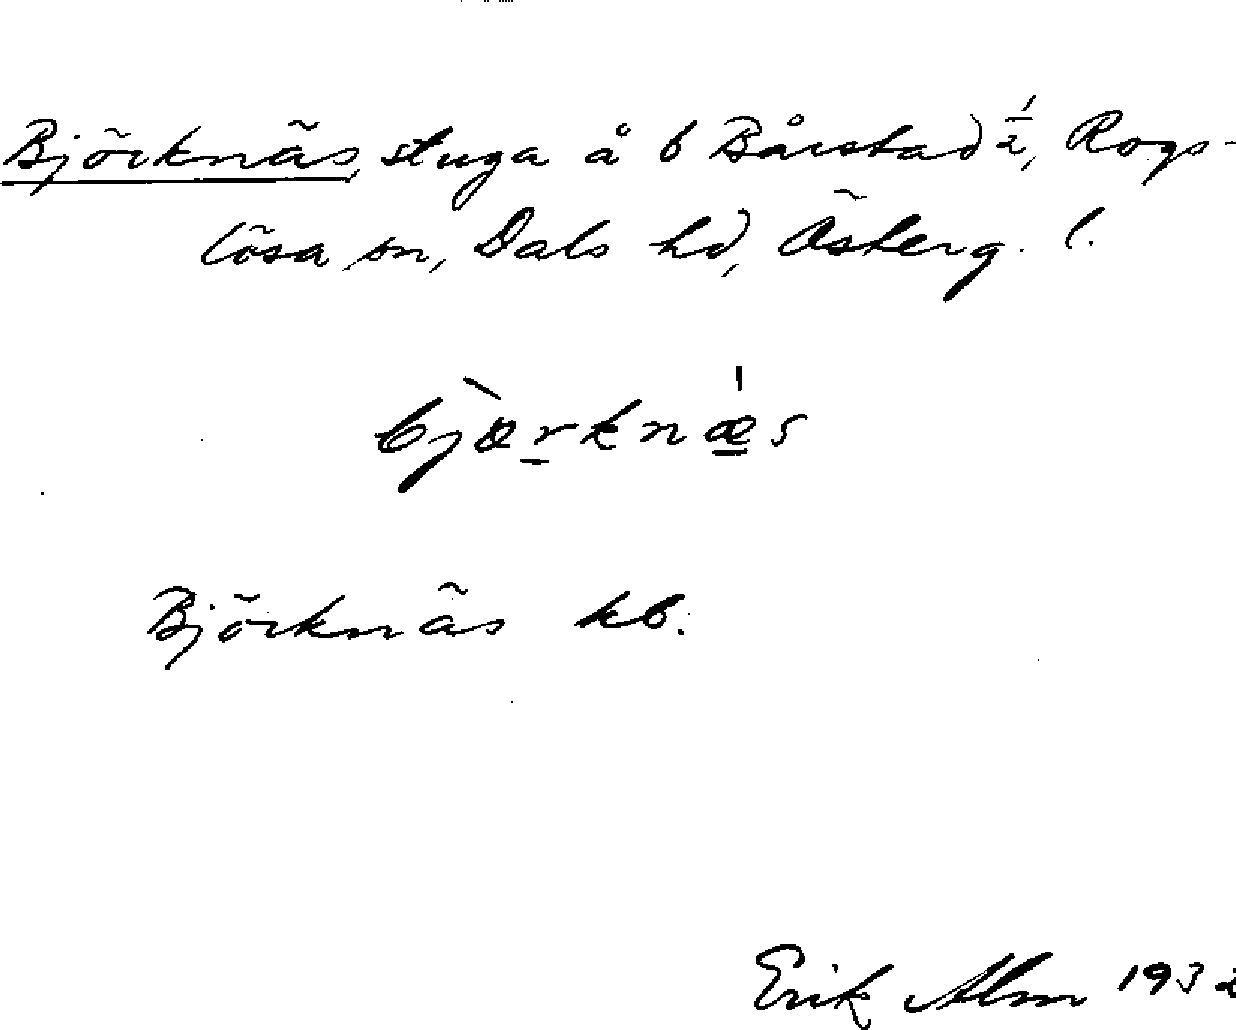 Björknäs, stuga å b Bårstad 1/2, Rogs-
lösa sn, Dals hd, Österg. l.
bjö̀rknä́s
Björknäs kb.
Erik Alm 1932